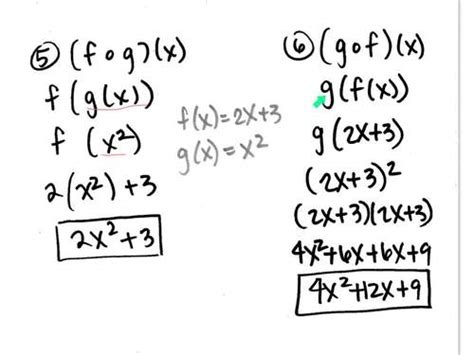 ⑤ (f∘g)(x)
f(g(x))
f (x²)
2(x²)+3
2x²+3
f(x)=2x+3
g(x)=x²
⑥ (g∘f)(x)
g(f(x))
g(2x+3)
(2x+3)²
(2x+3)(2x+3)
4x²+6x+6x+9
4x²+12x+9